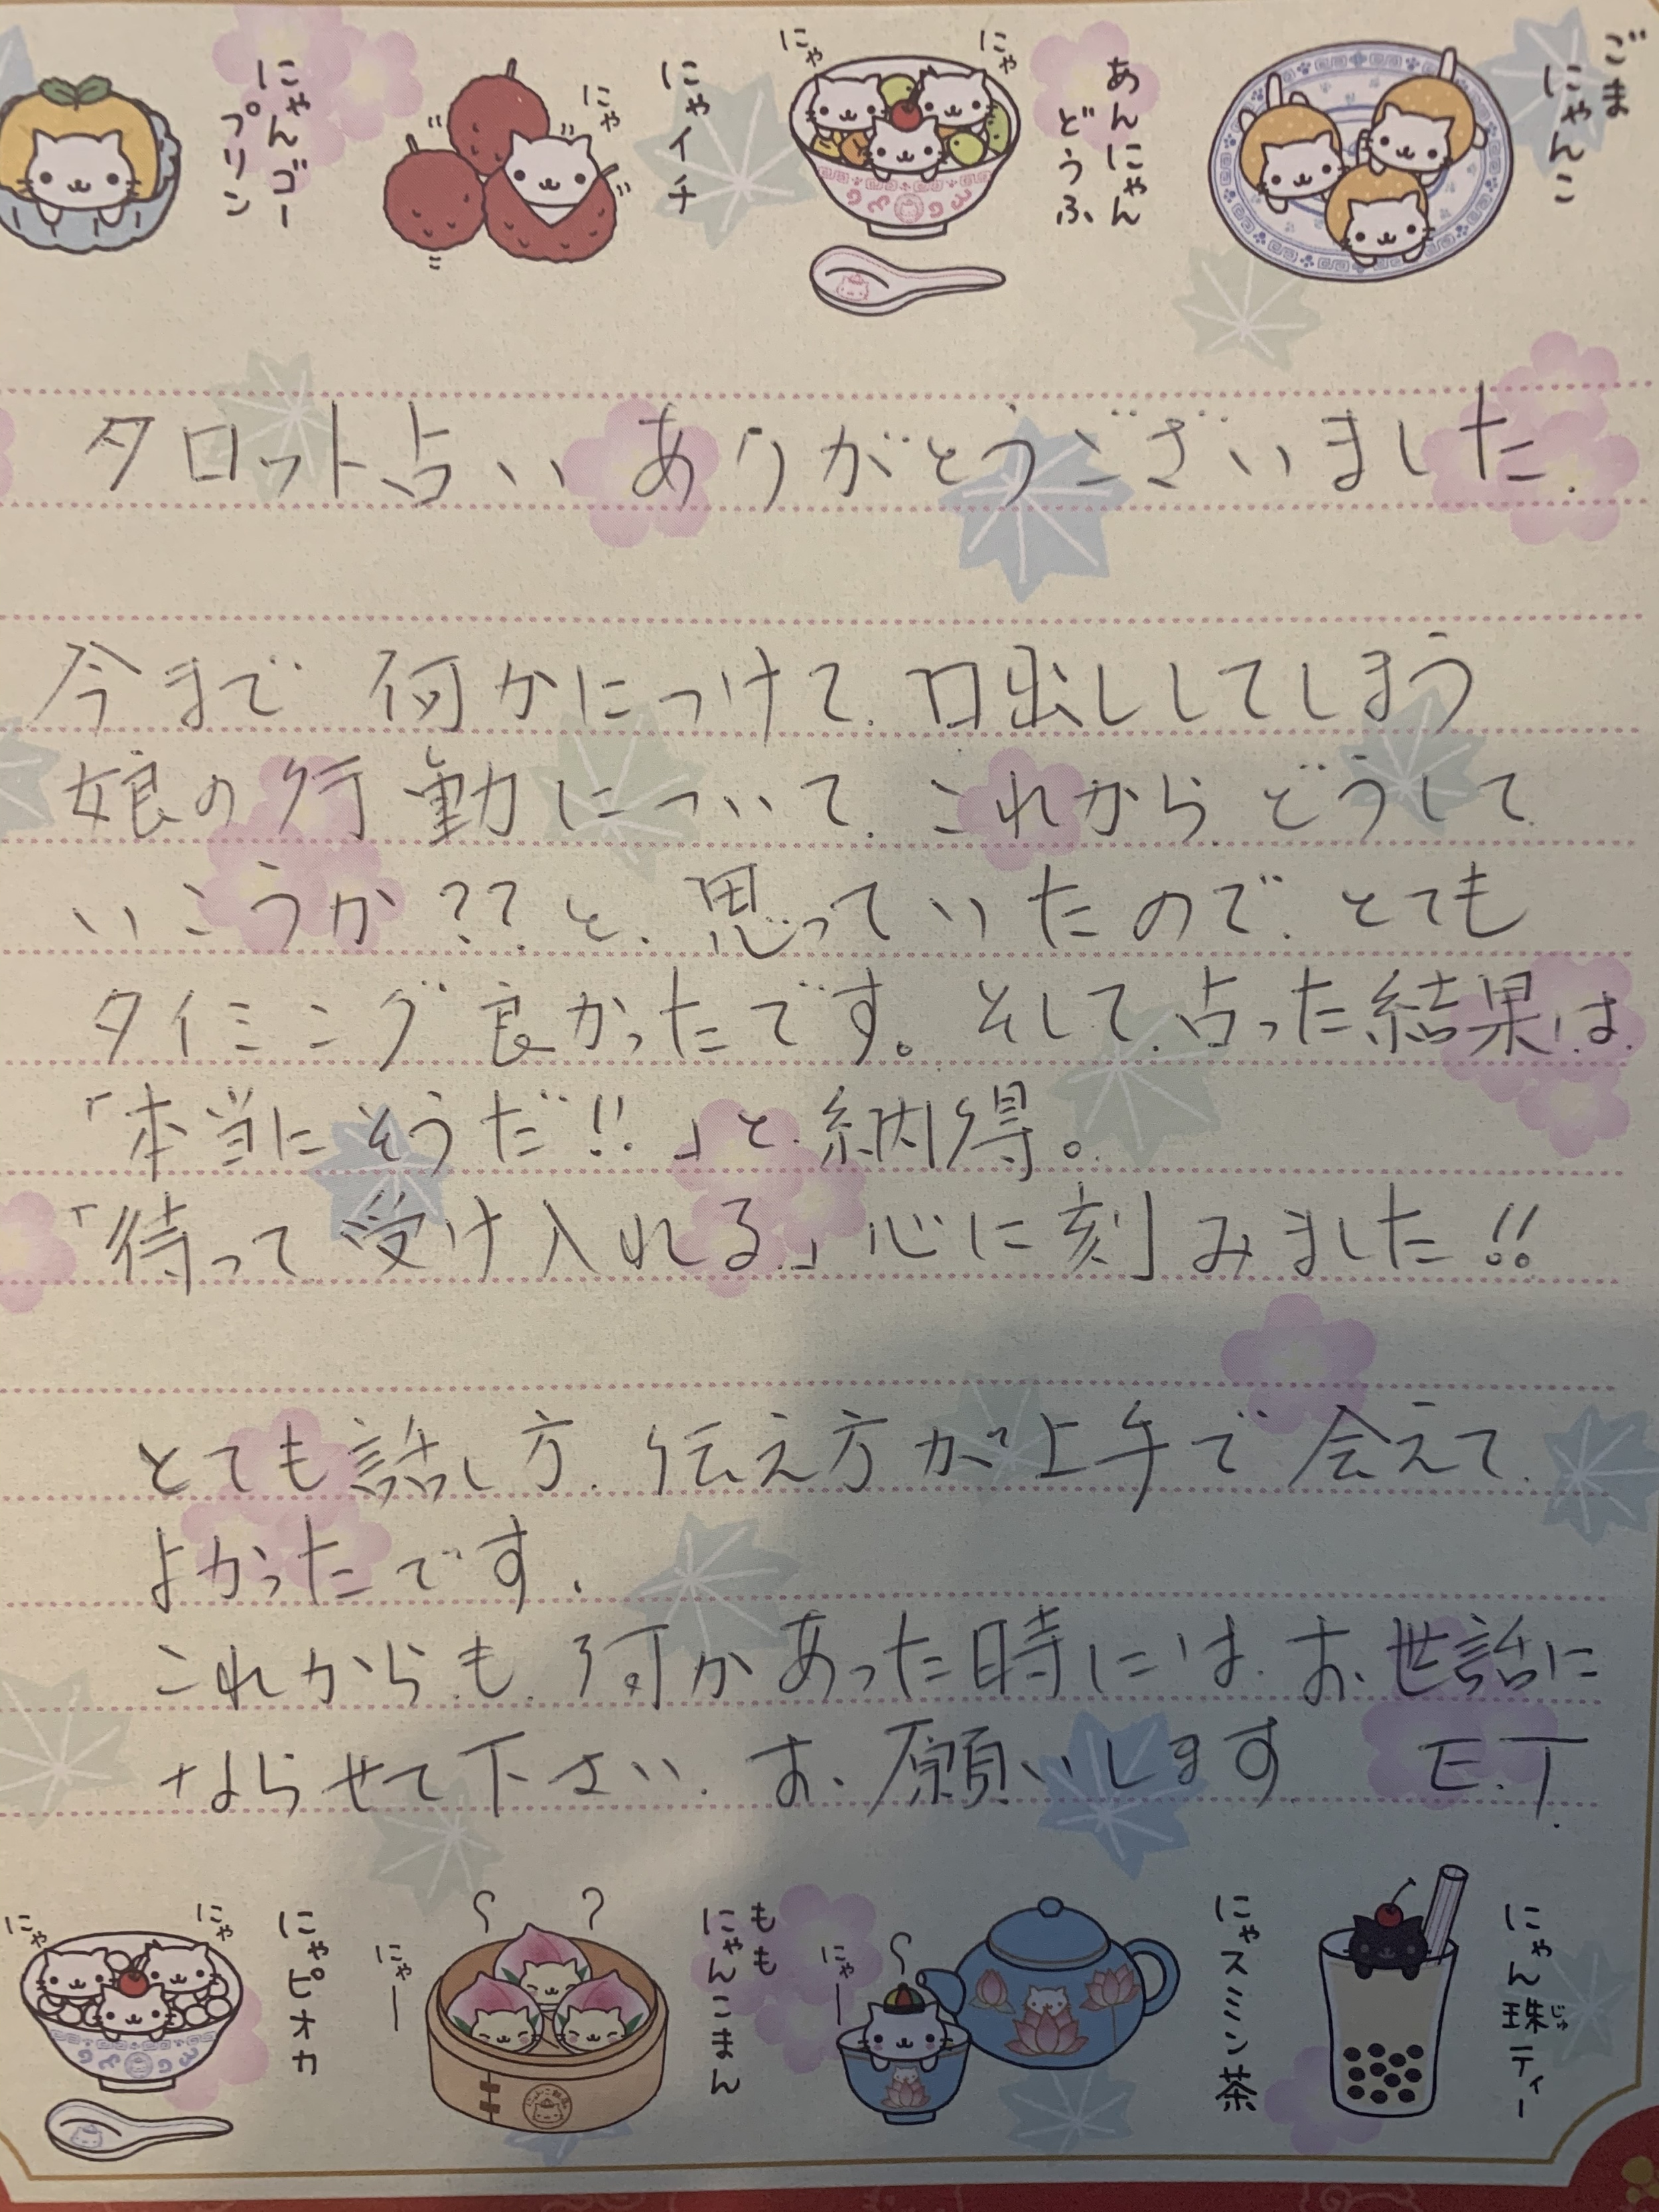 ごま
にゃんこ
あんにゃん
どうふ
にゃ
にゃ
にゃイチ
にゃ
にゃんゴー
プリン
タロット占い ありがとうございました.
今まで 何かにつけて.口出ししてしまう
娘の行動について.これから どうして
いこうか??と.思っていたので.とても
タイミング良かったです。そして.占った結果は.
「本当にそうだ!!」と.納得。
「待って受け入れる」心に刻みました!!
とても話し方.伝え方が上手で 会えて.
よかったです.
これからも.何かあった時には.お世話に
ならせて下さい.お願いします E.T.
にゃん珠ティー
じゅ
にゃスミン茶
にゃー
もも
にゃんこまん
にゃー
にゃピオカ
にゃ
にゃ